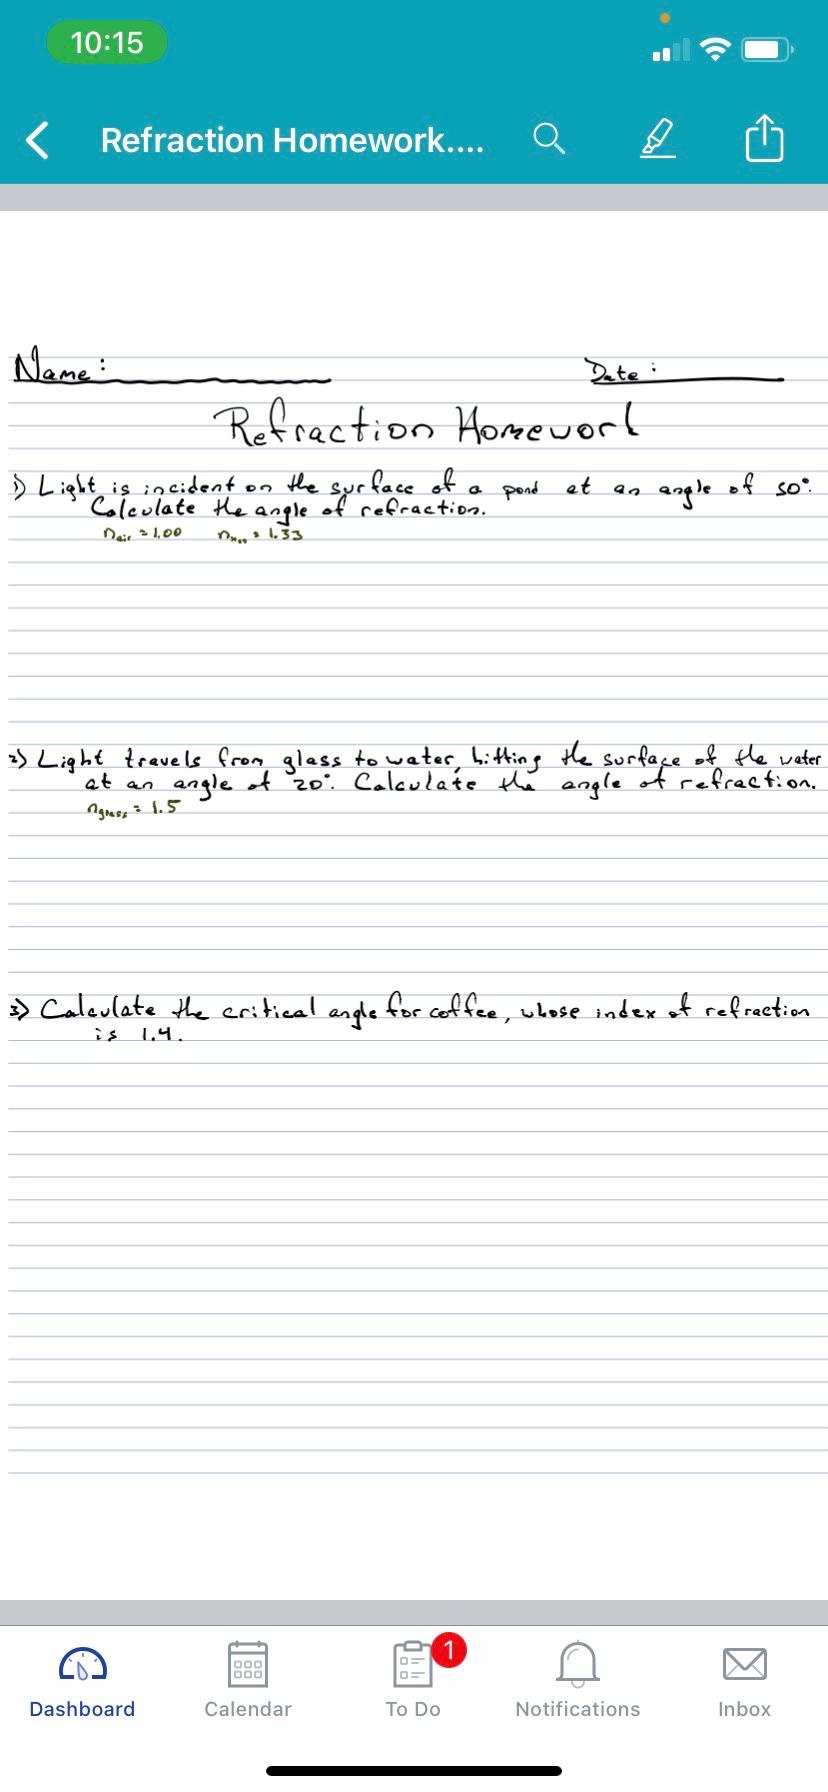 10:15
Refraction Homework....
Name: Date:
Refraction Homework
1) Light is incident on the surface of a pond at an angle of 50°.
Calculate the angle of refraction.
nair = 1.00 = 1.33
2) Light travels from glass to water, hitting the surface of the water
at an angle of 20°. Calculate the angle of refraction.
nglass = 1.5
3) Calculate the critical angle for coffee, whose index of refraction
is 1.4.
1
Dashboard Calendar To Do Notifications Inbox